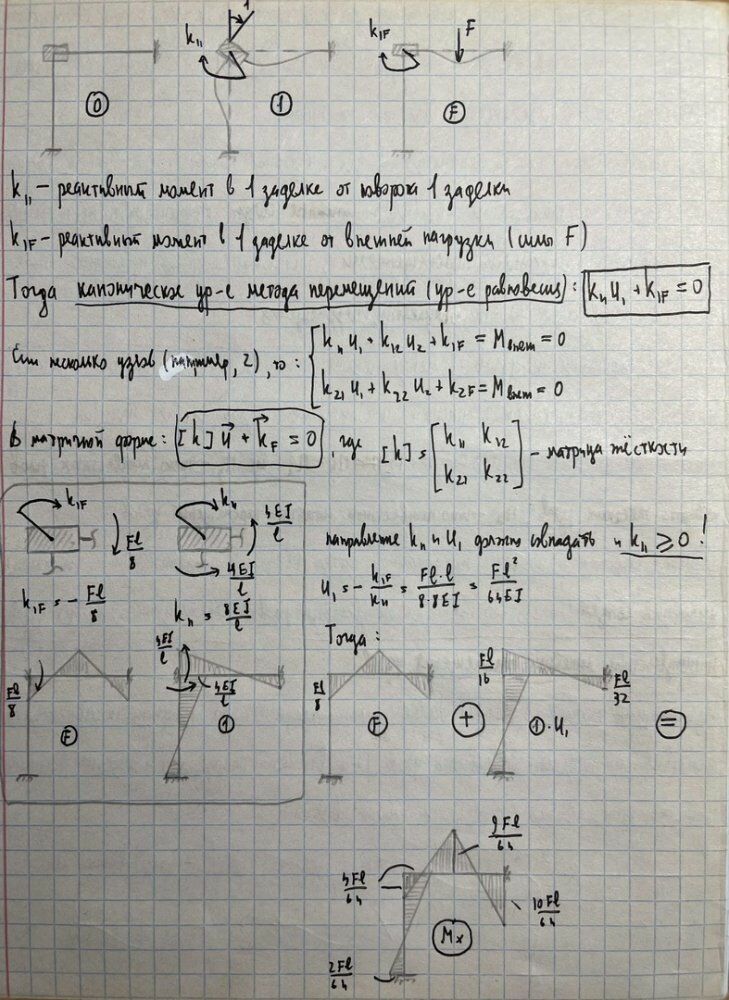 k₁₁ 1 k₁F F
0 1 F
k₁₁ – реактивный момент в 1 заделке от поворота 1 заделки
k₁F – реактивный момент в 1 заделке от внешней нагрузки (силы F)
Тогда каноническое ур-е метода перемещений (ур-е равновесия): k₁₁u₁ + k₁F = 0
Если несколько узлов (например, 2), то: k₁₁u₁ + k₁₂u₂ + k₁F = Mвнеш = 0
k₂₁u₁ + k₂₂u₂ + k₂F = Mвнеш = 0
В матричной форме: [k]u⃗ + k⃗F = 0, где [k] = [k₁₁ k₁₂; k₂₁ k₂₂] – матрица жёсткости
k₁F Fl/8 k₁₁ 4EI/l 4EI/l
направление k₁₁ и u₁ должно совпадать и k₁₁ ≥ 0!
k₁F = - Fl/8 k₁₁ = 8EI/l
u₁ = - k₁F/k₁₁ = Fl·l/8·8EI = Fl²/64EI
Тогда:
Fl/8 F 4EI/l 4EI/l 1
Fl/8 F + Fl/16 Fl/32 1·u₁ =
9Fl/64
4Fl/64 10Fl/64
Mx
2Fl/64